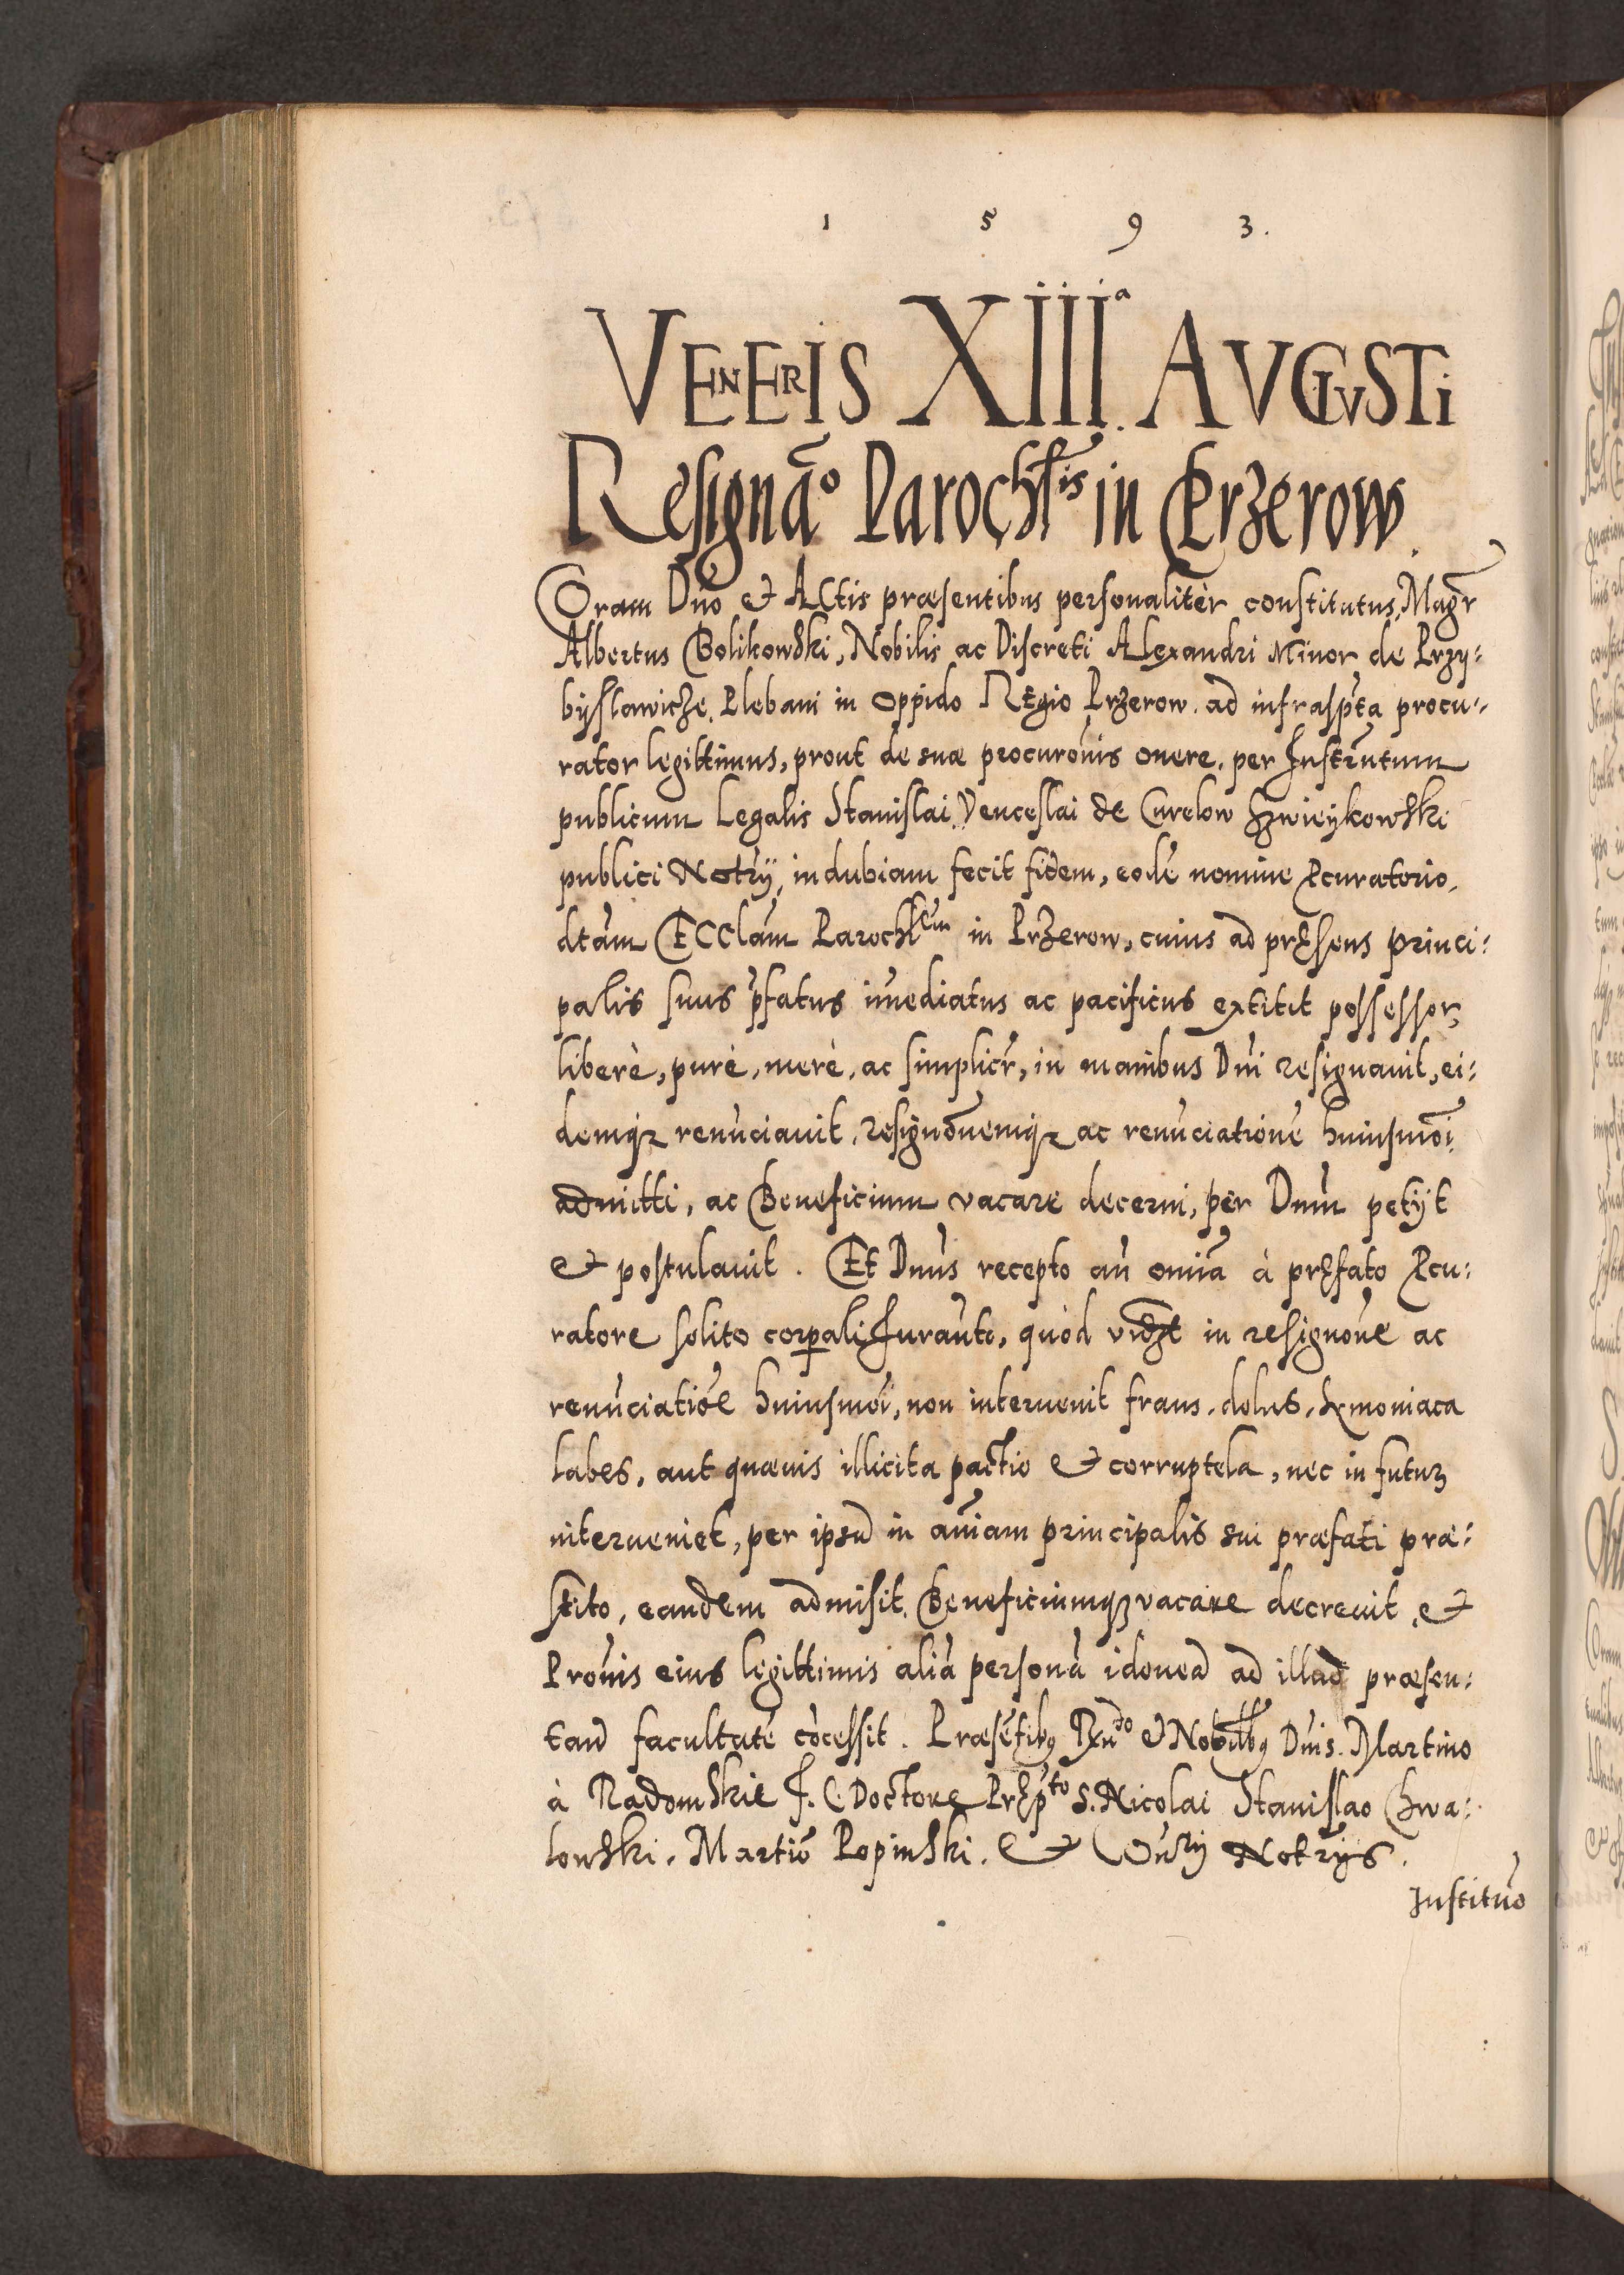 1 5 9 3.
VENERIS XIII.ª AVGVSTi
Resignão Parochlis in Przerow.
Coram Dño et ACtis præsentibus personalitèr constitutus, Magr̃
Albertus Bolikowski, Nobilis ac Discreti Alexandri Minor de Przy:
byslawicze, Plebani in Oppido REgio Przerow. ad infrasp̃ta procu:
rator legittimus, prout de suæ procurõnis onere, per Instr̃utum
publicum Legalis Stanislai Venceslai de Curelow
publici Notr̃ij, indubiam fecit fidem, eodẽ nomine Pcuratorio,
dtãm ECClãm Parochlem in Przerow, cuius ad prEsens princi:
palis suus p̃fatus im̃ediatus ac pacificus extitit possessor,
liberè, purè, merè, ac simplicr̃, in manibus Dñi resignauit, ei:
demqʒ renũciauit, resignõnemqʒ ac renũciationẽ huiusmõi
admitti, ac Beneficium vacare decerni, per Dnũm petijt
et postulauit. Et Dnũs recepto añ omĩa à prEfato Pcu:
ratore solito corpali Jurañto, quòd vidʒt in resignõne ac
renũciatiõe huiusmõi, non interuenit fraus, dolus, Symoniaca
labes, aut quæuis illicita pactio et corruptela, nec in futuʒ
interueniet, per ipsũ in añiam principalis sui præfati præ:
stito, eandem admisit, Beneficiumqʒ vacare decreuit, et
Prõnis eius legittimis aliã personã idoneã ad illud præsen:
tand facultatẽ cõcessit. Præsẽtibʒ Rxñdo et Nobilbʒ Dñis. Martino
à Radomskie J. C. Doctore PrEpto S. Nicolai Stanislao Chwa:
lowski, Martiõ Popinski. et Notr̃ijs.
Institũo